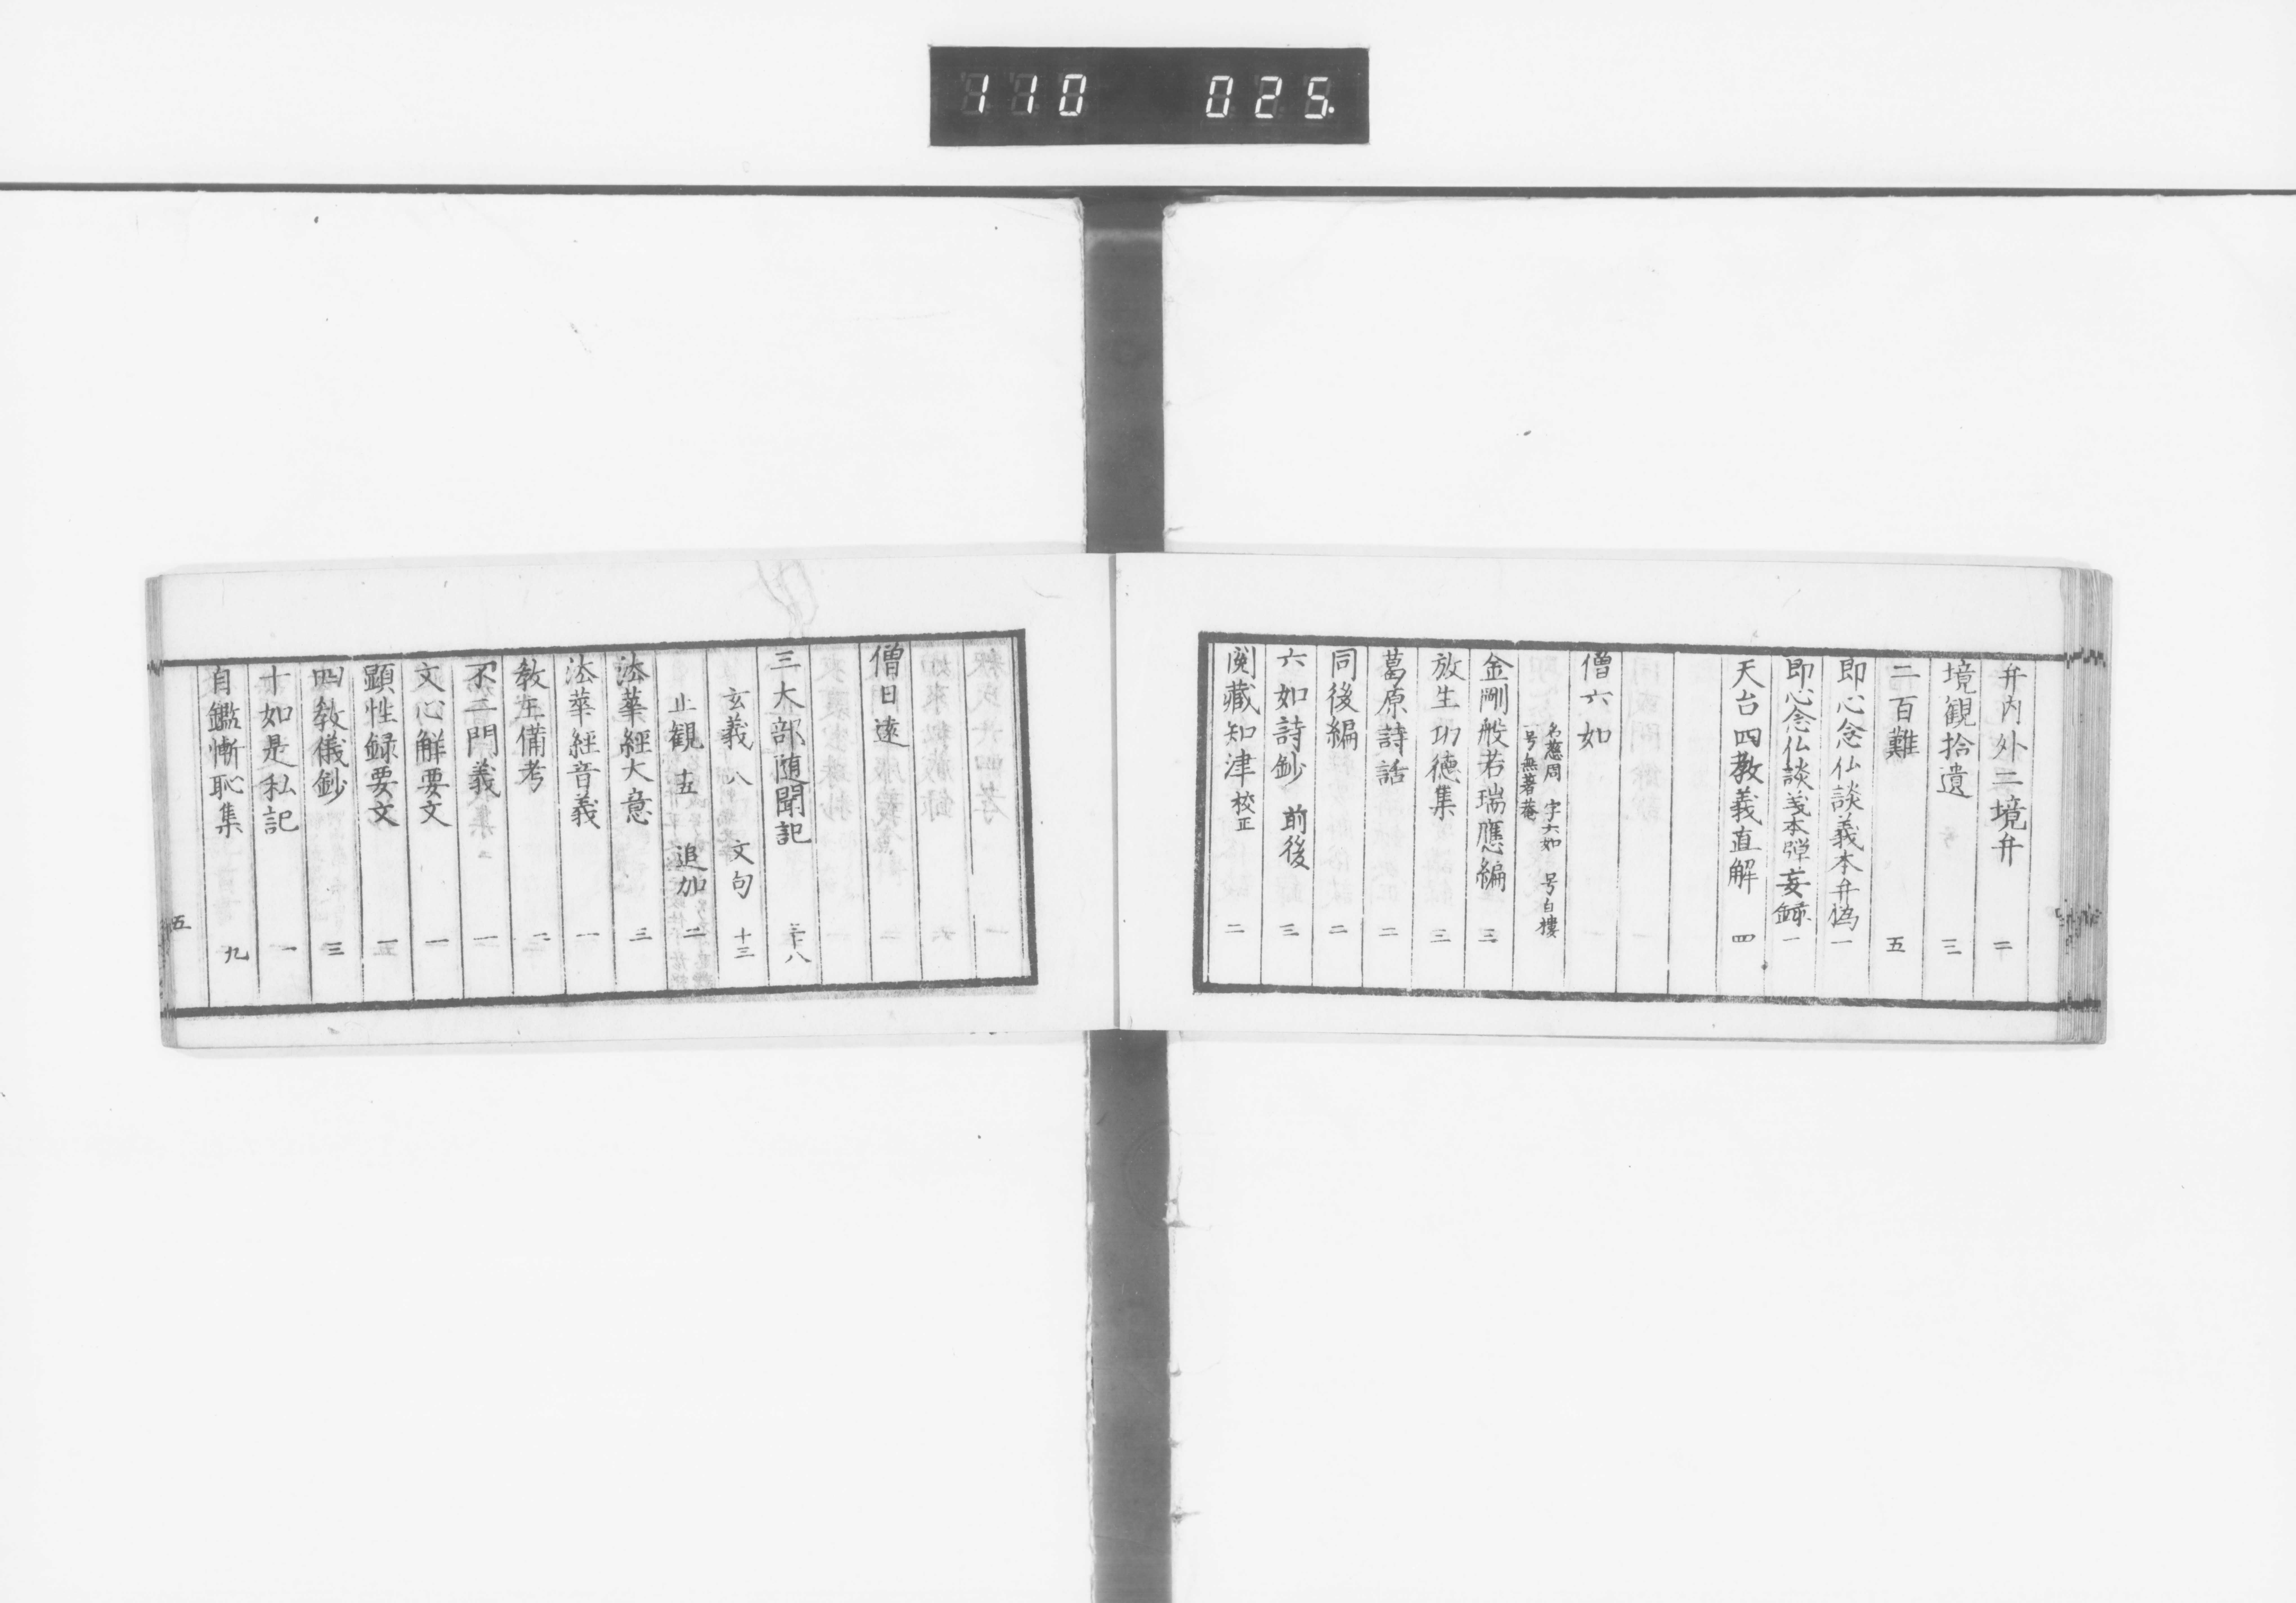 110 025.
弁内外二境弁 二
境観拾遺 三
二百難 五
即心念仏談義本弁偽 一
即心念仏談義本弾妄録 一
天台四教義直解 四
僧六如
名慈周 字六如 号白楼
一号無著菴
金剛般若瑞應編 三
放生功徳集 三
葛原詩話 二
同後編 二
六如詩鈔 前後 三
閲藏知津 校正 二
僧日遠
三大部随聞記 三十八
玄義 八 文句 十三
止観 五 追加 二
法華經大意 三
法華經音義 一
教主備考 二
不二門義 一
文心解要文 一
顕性録要文 一
四教儀鈔 三
十如是私記 一
自鑑慚恥集 九
五